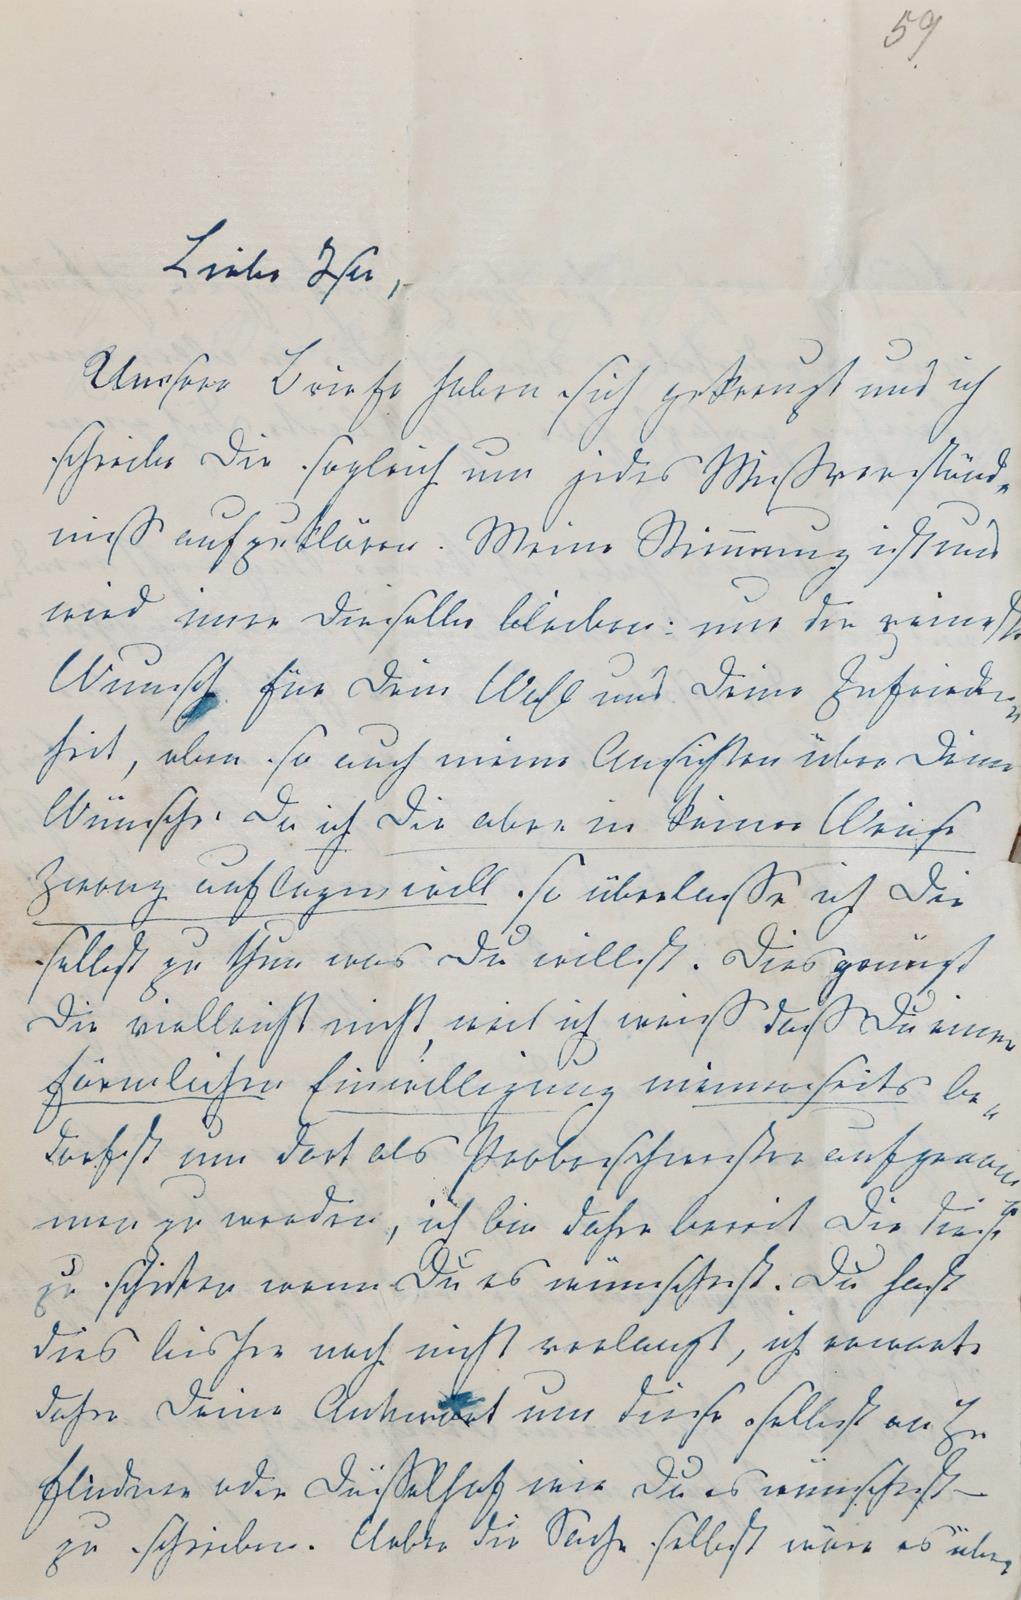 59
Liebe Ister,
Unsere Briefe haben sich gekreuzt und ich
schreibe Dir sogleich um jedes Missverständ-
niss aufzuklären. Meine Stimmung ist und
wird immer dieselbe bleiben: nur der reinste
Wunsch für Dein Wohl und Deine Zufrieden-
heit, eben so auch meine Ansichten über Deine
Wünsche. Da ich Dir aber in keiner Weise
Zwang auflegen will so überlasse ich Dir
selbst zu thun was Du willst. Dies genügt
Dir vielleicht nicht, weil ich weiss dass Du einer
förmlichen Einwilligung meinerseits be-
darfst um dort als Probeschwester aufgenom
men zu werden, ich bin daher bereit Dir diese
zu schicken wenn Du es wünschest. Du hast
dies bisher noch nicht verlangt, ich erwarte
daher Deine Antwort um diese selbst an
Fliedner oder Disselhof wie Du es wünschest —
zu schreiben. Ueber die Sache selbst wäre es über